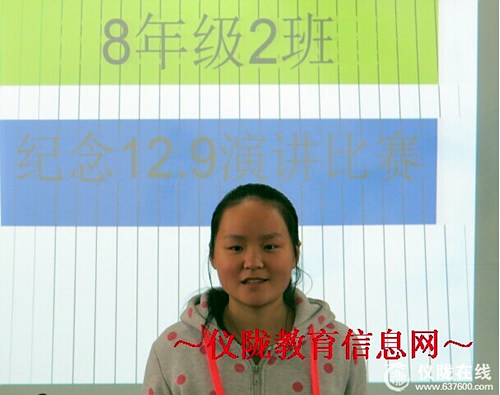 8年级2班
纪念12.9演讲比赛
～仪陇教育信息网～
仪陇在线
www.637600.com